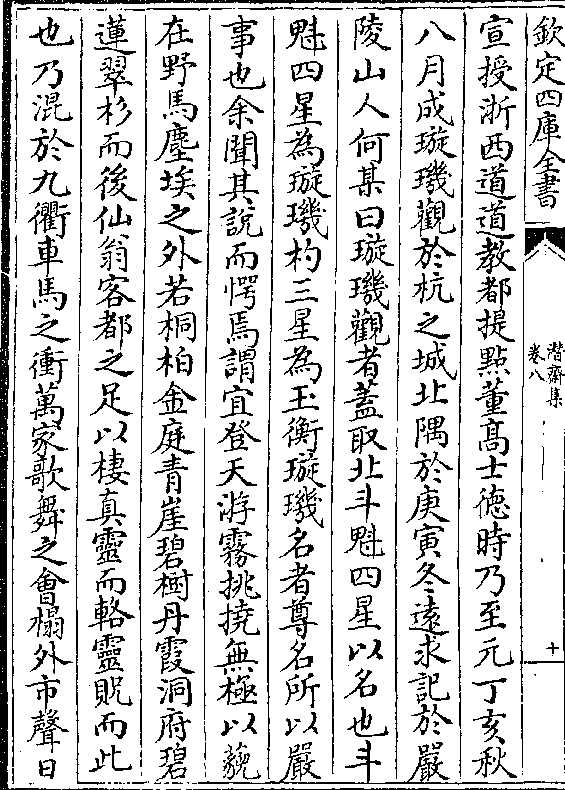 欽定四庫全書
潛齋集
卷八
十
宣授浙西道道教都提點董髙士徳時乃至元丁亥秋
八月成璇璣觀於杭之城北隅於庚寅冬遠求記於嚴
陵山人何某曰璇璣觀者蓋取北斗魁四星以名也斗
魁四星為璇璣杓三星為玉衡璇璣名者尊名所以嚴
事也余聞其説而愕焉謂宜登天游霧挑撓無極以藐
在野馬塵埃之外若桐柏金庭青崖碧樹丹霞洞府碧
蓮翠杉而後仙翁客都之足以棲真靈而輅靈貺而此
也乃混於九衢車馬之衝萬家歌舞之㑹榻外市聲日